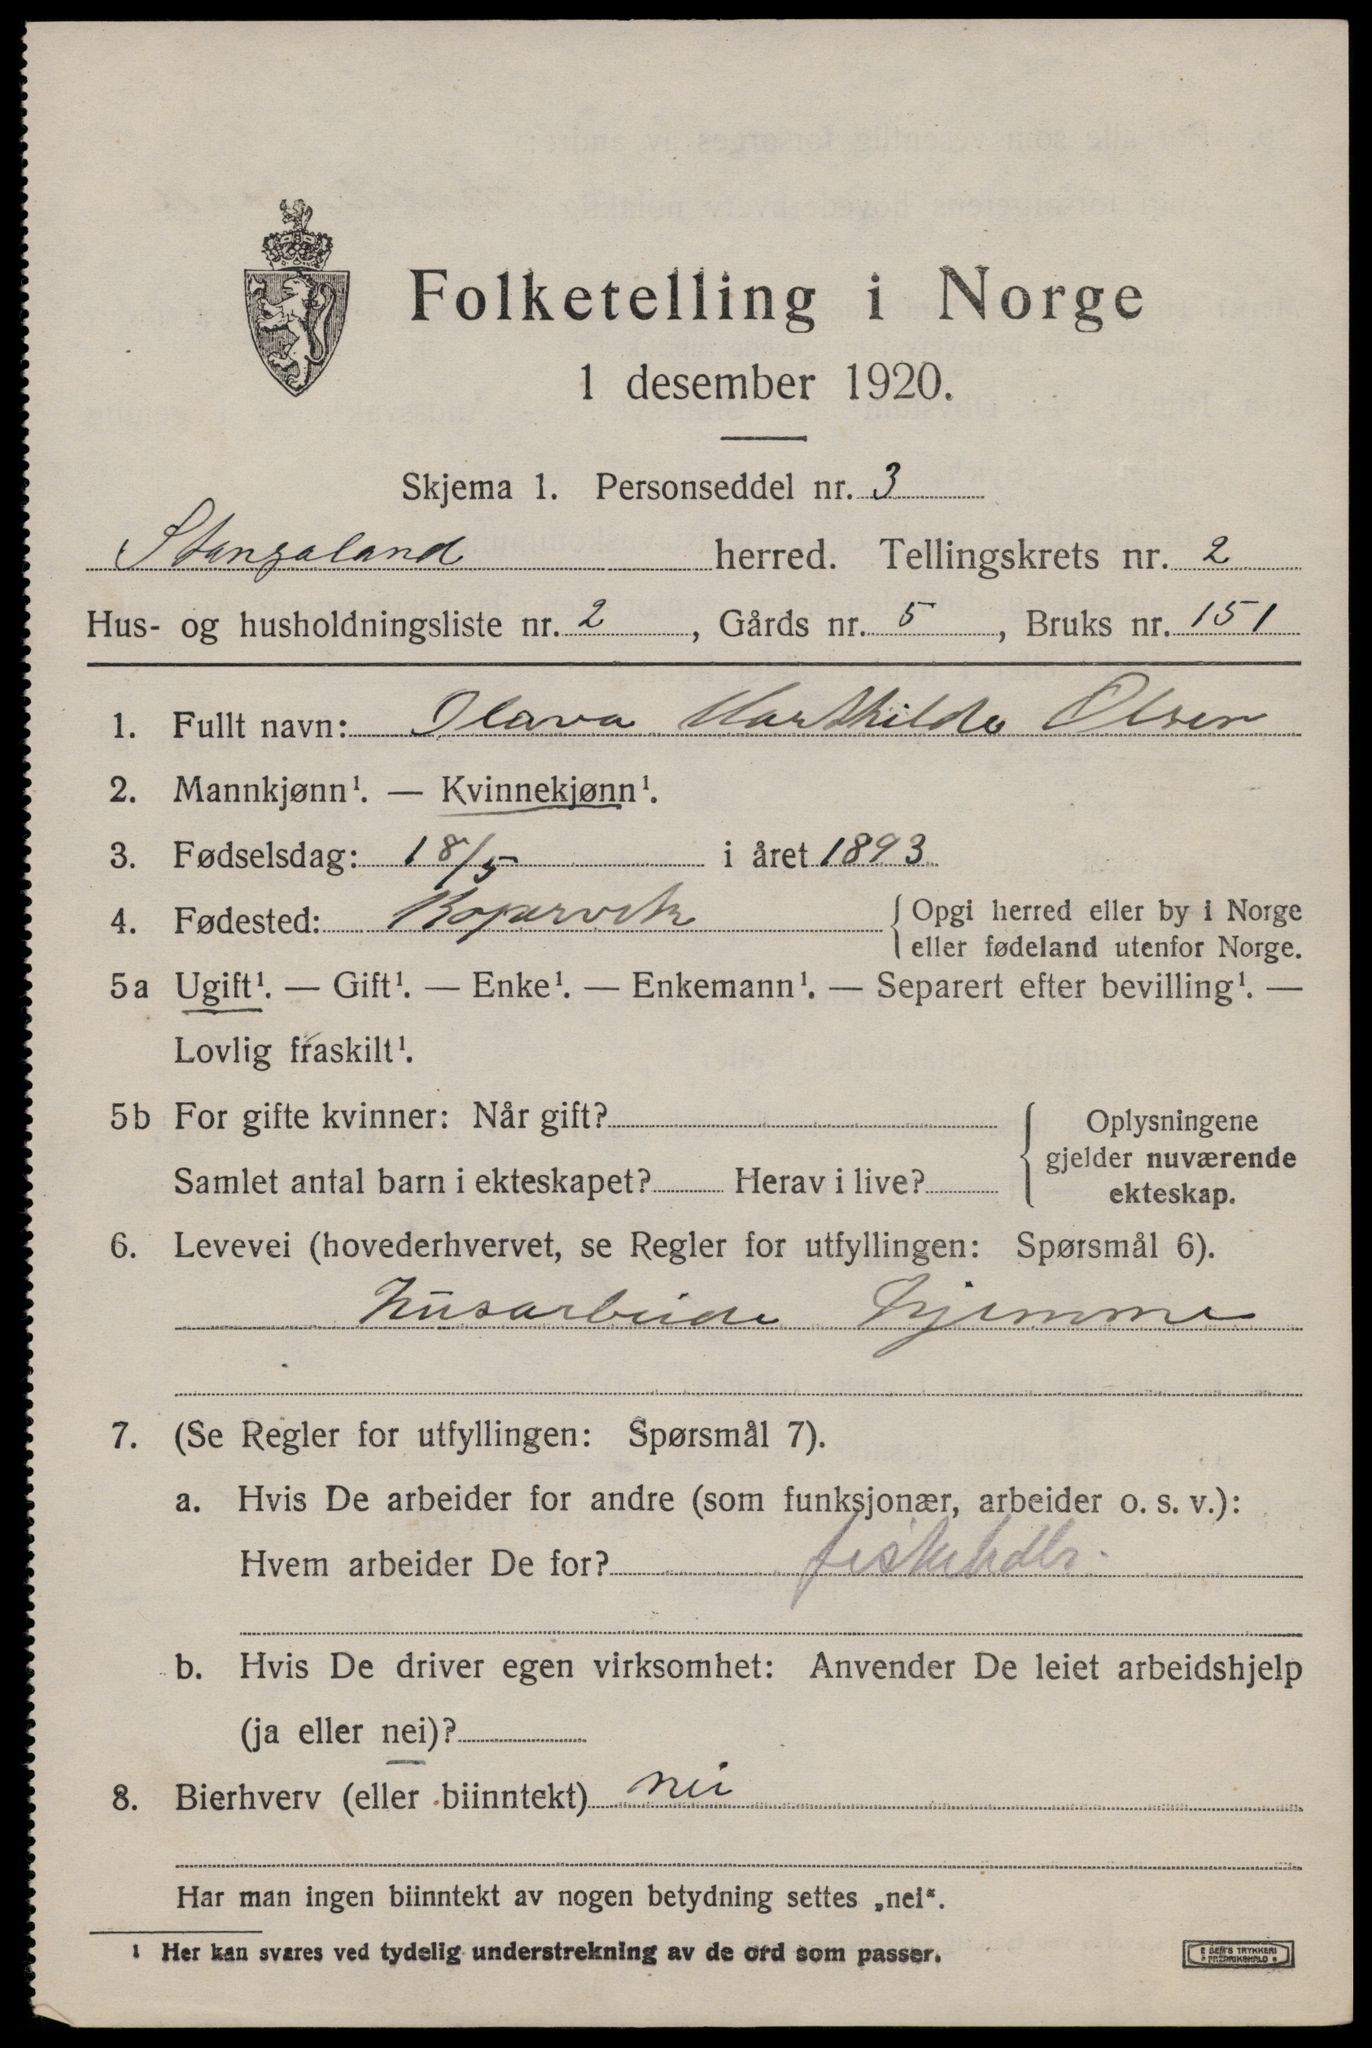 Folketelling i Norge
1 desember 1920.
Skjema 1. Personseddel nr. 3
Stangaland herred. Tellingskrets nr. 2
Hus- og husholdningsliste nr. 2, Gårds nr. 5, Bruks nr. 151
1. Fullt navn: Olava Olsen
2. Mannkjønn¹. — Kvinnekjønn¹.
3. Fødselsdag: 18/5 i året 1893
4. Fødested: Kopervik { Opgi herred eller by i Norge
eller fødeland utenfor Norge.
5a Ugift¹. — Gift¹. — Enke¹. — Enkemann¹. — Separert efter bevilling¹. —
Lovlig fraskilt¹.
5b For gifte kvinner: Når gift?
Samlet antal barn i ekteskapet? Herav i live?
{ Oplysningene
gjelder nuværende
ekteskap.
6. Levevei (hovederhvervet, se Regler for utfyllingen: Spørsmål 6).
Husarbeide hjemme
7. (Se Regler for utfyllingen: Spørsmål 7).
a. Hvis De arbeider for andre (som funksjonær, arbeider o. s. v.):
Hvem arbeider De for? fiskehdlr.
b. Hvis De driver egen virksomhet: Anvender De leiet arbeidshjelp
(ja eller nei)?
8. Bierhverv (eller biinntekt) nei
Har man ingen biinntekt av nogen betydning settes „nei“.
1 Her kan svares ved tydelig understrekning av de ord som passer.
E SEM'S TRYKKERI
FREDRIKSHALD